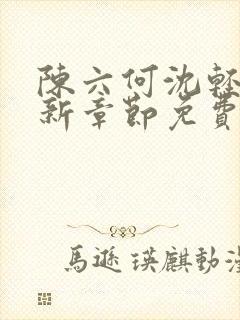 陳六何沈輕
新章節免費
馬遜 瑛麒動漫